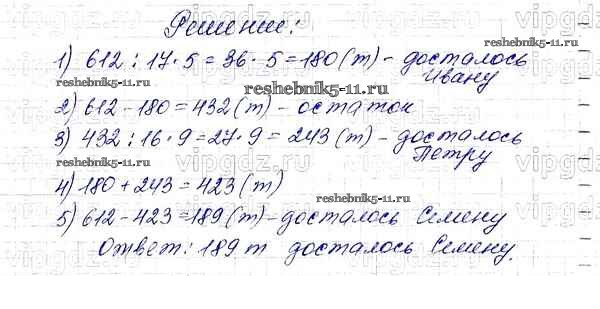 Решение:
1) 612 : 17 · 5 = 36 · 5 = 180 (т) - досталось
Ивану
2) 612 - 180 = 432 (т) - остаток
3) 432 : 16 · 9 = 27 · 9 = 243 (т) - досталось
Петру
4) 180 + 243 = 423 (т)
5) 612 - 423 = 189 (т) - досталось Семену
Ответ: 189 т досталось Семену.
vipgdz.ru
reshebnik5-11.ru
reshebnik5-11.ru
reshebnik5-11.ru
reshebnik5-11.ru
vipgdz.ru
reshebnik5-11.ru
reshebnik5-11.ru
reshebnik5-11.ru